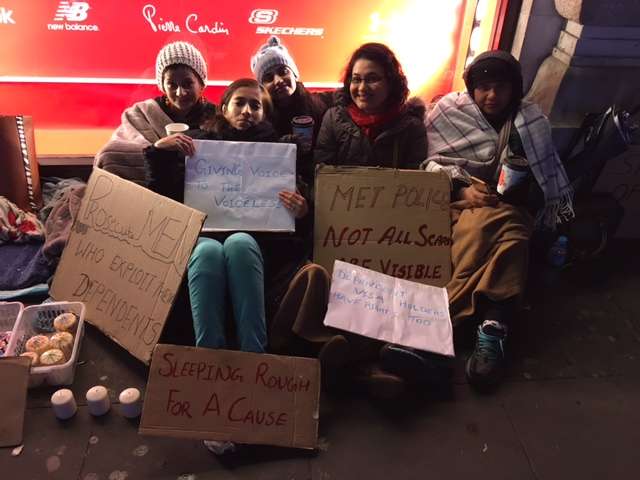 new balance
Pierre Cardin
SKECHERS
GIVING VOICE
TO THE
VOICELESS
PROSECUTE MEN
WHO EXPLOIT THEIR
DEPENDENTS
MET POLICE
NOT ALL SCARS
ARE VISIBLE
DEPENDENT
VISA HOLDERS
HAVE RIGHTS TOO
SLEEPING ROUGH
FOR A CAUSE